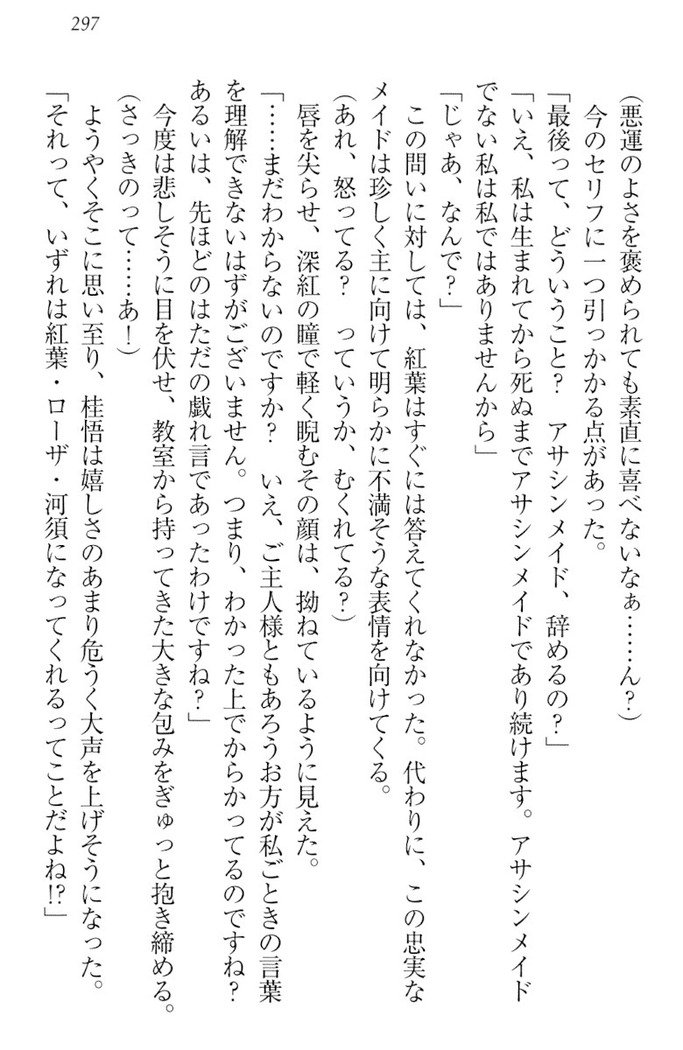 297
(悪運のよさを褒められても素直に喜べないなぁ……ん?)
　今のセリフに一つ引っかかる点があった。
「最後って、どういうこと?　アサシンメイド、辞めるの?」
「いえ、私は生まれてから死ぬまでアサシンメイドであり続けます。アサシンメイド
でない私は私ではありませんから」
「じゃあ、なんで?」
　この問いに対しては、紅葉はすぐには答えてくれなかった。代わりに、この忠実な
メイドは珍しく主に向けて明らかに不満そうな表情を向けてくる。
(あれ、怒ってる?　っていうか、むくれてる?)
　唇を尖らせ、深紅の瞳で軽く睨むその顔は、拗ねているように見えた。
「……まだわからないのですか?　いえ、ご主人様ともあろうお方が私ごときの言葉
を理解できないはずがございません。つまり、わかった上でからかってるのですね?
あるいは、先ほどのはただの戯れ言であったわけですね?」
　今度は悲しそうに目を伏せ、教室から持ってきた大きな包みをぎゅっと抱き締める。
(さっきのって……あ!)
　ようやくそこに思い至り、桂悟は嬉しさのあまり危うく大声を上げそうになった。
「それって、いずれは紅葉・ローザ・河須になってくれるってことだよね!?」